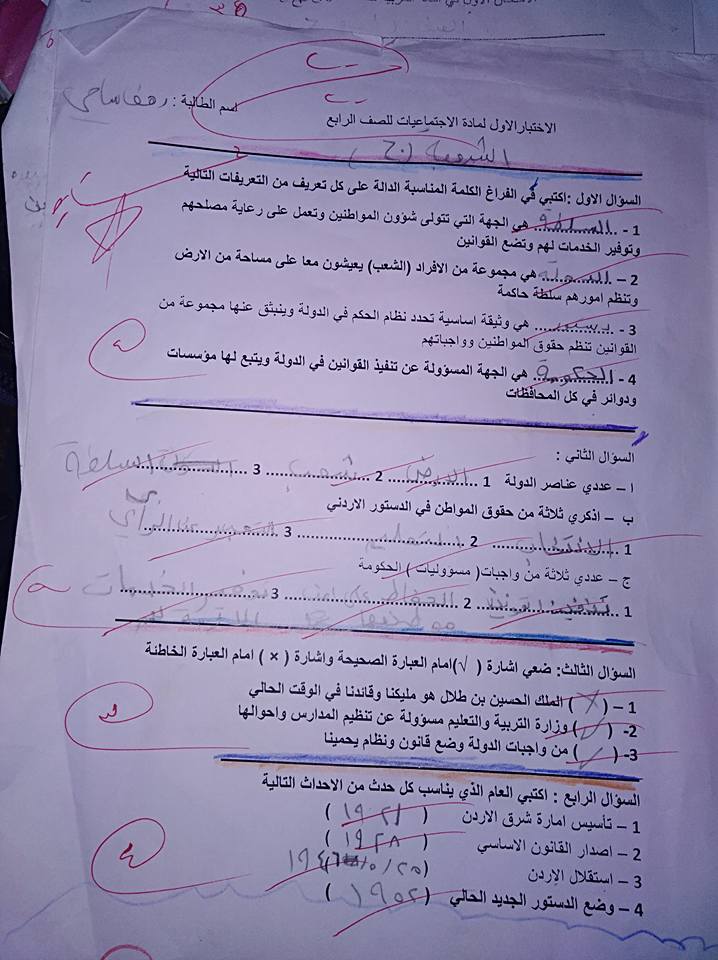 اسم الطالبة : رهف سامي
الاختبار الاول لمادة الاجتماعيات للصف الرابع
الشعبة (ج)
السؤال الاول :اكتبي في الفراغ الكلمة المناسبة الدالة على كل تعريف من التعريفات التالية
1 - السلطة هي الجهة التي تتولى شؤون المواطنين وتعمل على رعاية مصلحهم
وتوفير الخدمات لهم وتضع القوانين
2 – الدولة هي مجموعة من الافراد (الشعب) يعيشون معا على مساحة من الارض
وتنظم امورهم سلطة حاكمة
3 - دستور هي وثيقة اساسية تحدد نظام الحكم في الدولة وينبثق عنها مجموعة من
القوانين تنظم حقوق المواطنين وواجباتهم
4 - الحكومة هي الجهة المسؤولة عن تنفيذ القوانين في الدولة ويتبع لها مؤسسات
ودوائر في كل المحافظات
السؤال الثاني :
ا – عددي عناصر الدولة 1 الارض 2 شعب 3 السلطة
ب – اذكري ثلاثة من حقوق المواطن في الدستور الاردني
1 الانتخاب 2 التعليم 3 التعبير عن الرأي
ج – عددي ثلاثة من واجبات( مسووليات ) الحكومة
1 تنفيذ القوانين 2 الحفاظ على امن 3 الخدمات
السؤال الثالث: ضعي اشارة ( √ )امام العبارة الصحيحة واشارة ( × ) امام العبارة الخاطئة
1 – ( × ) الملك الحسين بن طلال هو مليكنا وقائدنا في الوقت الحالي
2- ( √ ) وزارة التربية والتعليم مسؤولة عن تنظيم المدارس واحوالها
3- ( √ ) من واجبات الدولة وضع قانون ونظام يحمينا
السؤال الرابع : اكتبي العام الذي يناسب كل حدث من الاحداث التالية
1 – تأسيس امارة شرق الاردن ( ١٩٢١ )
2 – اصدار القانون الاساسي ( ١٩٢٨ )
3 – استقلال الاردن ( ٢٥/٥/ ١٩٤٦
4 – وضع الدستور الجديد الحالي ( ١٩٥٢ )